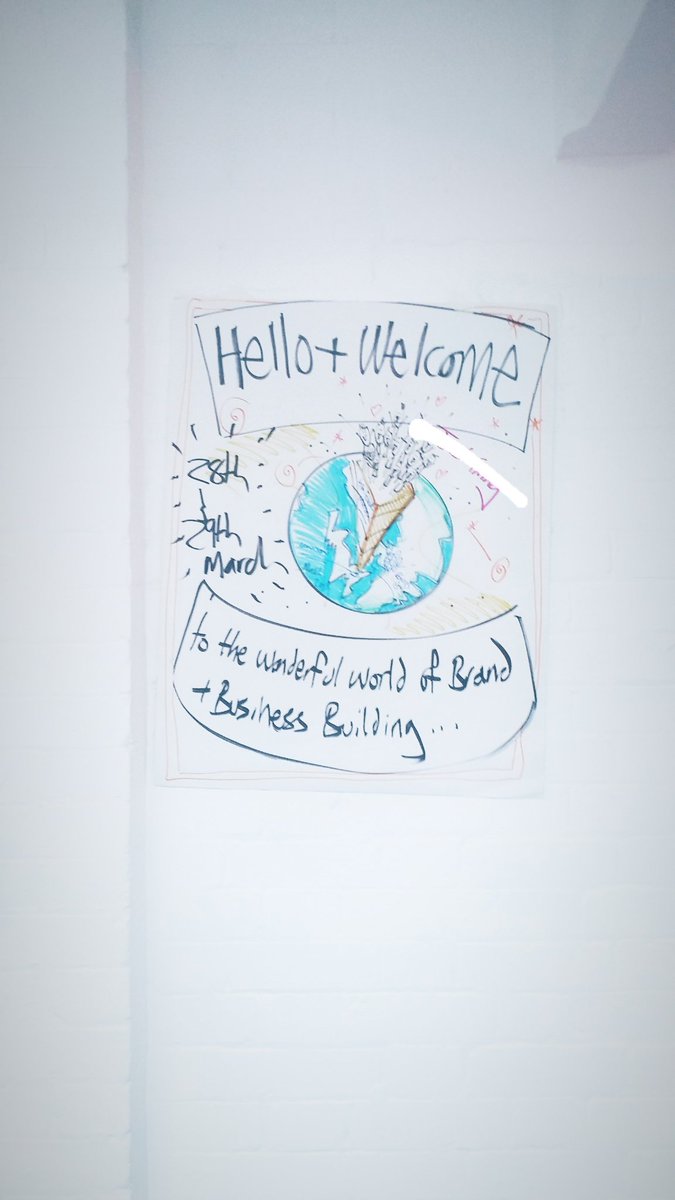 Hello + Welcome
28th
29th
March
to the wonderful world of Brand
+ Business Building...